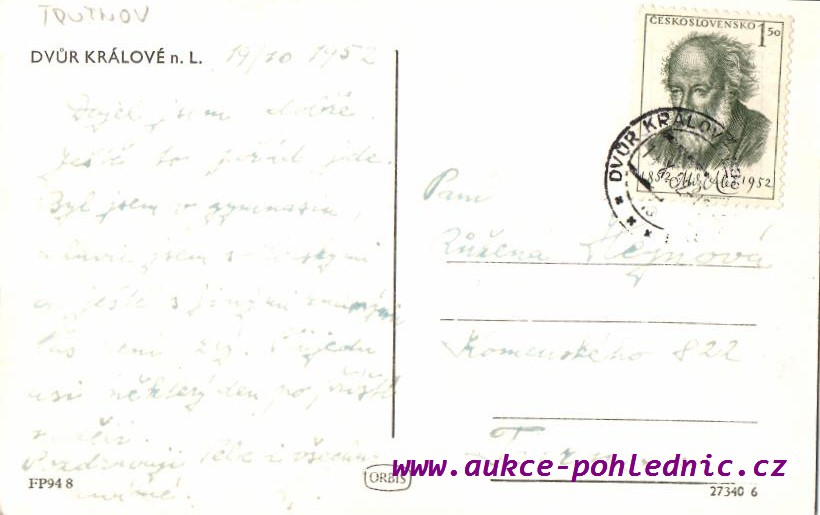 TRUTNOV
DVŮR KRÁLOVÉ n. L. 19/10 1952
Dojel jsem dobře.
Ještě to pořád jde.
Byl jsem v gymnasiu,
mluvil jsem s
a ještě s jinými známými
Přijedu
asi některý den po příští
neděli.
Pozdravuji Tebe i všechny
FP94 8
ORBIS
ČESKOSLOVENSKO
1 50
1852 Mik. Aleš 1952
DVŮR KRÁLOVÉ
Paní
Růžena Hejnová
Komenského 822
www.aukce-pohlednic.cz
27340 6